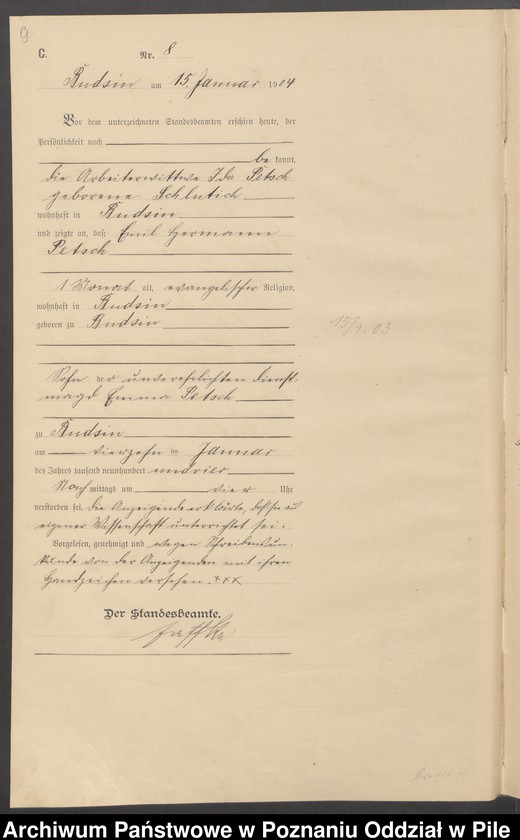 9
C. Nr. 8
Budsin am 15. Januar 1904
Vor dem unterzeichneten Standesbeamten erschien heute, der
Persönlichkeit nach
be kannt,
die Arbeiterwittwe Ida Petsch
geborene Schlutich
wohnhaft in Budsin
und zeigte an, daß Emil Hermann
Petsch
1 Monat alt, evangelischer Religion,
wohnhaft in Budsin
geboren zu Budsin
Sohn der unverehelichten Dienst-
magd Emma Petsch
zu Budsin
am vierzehn ten Januar
des Jahres tausend neunhundert und vier
Nach mittags um vier Uhr
verstorben sei. Die Anzeigende erklärte, daß sie aus
eigener Wissenschaft unterrichtet sei.
Vorgelesen, genehmigt und wegen Schreibensun-
kunde von der Anzeigenden mit ihrem
Handzeichen versehen. +++
Der Standesbeamte.
Archiwum Państwowe w Poznaniu Oddział w Pile